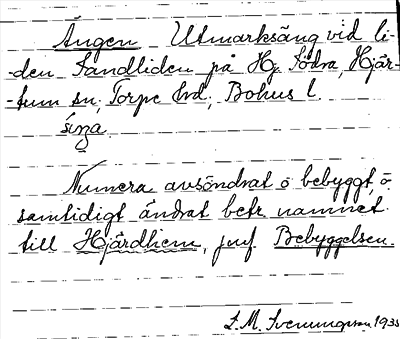 Ängen Utmarksäng vid li-
-den Sandliden på Hg Södra, Hjär-
-tum sn, Torpe hd, Bohus l.
Numera avsöndrat o bebyggt, o
samtidigt ändrat betr. namnet
till Hjärdhem, jmf. Bebyggelsen.
L.M. Svenungsson 1935